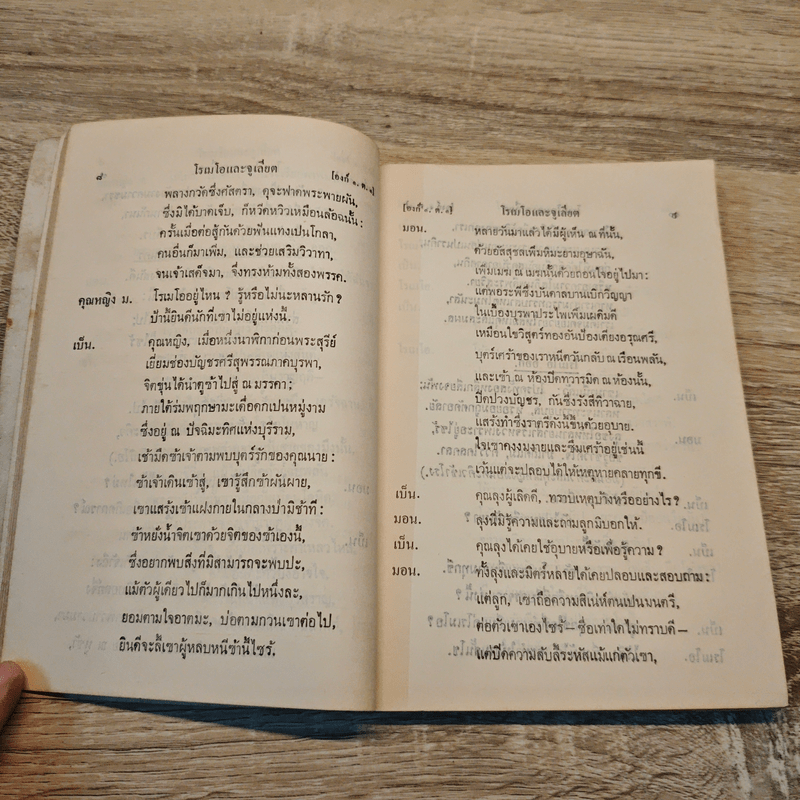 ๘ โรเมโอและจูเลียต [องก์ ๑. ต. ๑]
พลางกวัดซึ่งศัสตรา, ดุจะฟาดพระพายผัน,
ซึ่งมิได้บาดเจ็บ, ก็หวีดหวิวเหมือนล้อฉนั้น:
ครั้นเมื่อต่อสู้กันด้วยฟันแทงเปนโกลา,
คนอื่นก็มาเพิ่ม, และช่วยเสริมวิวาทา,
จนเจ้าเสด็จมา, จึ่งทรงห้ามทั้งสองพรรค.
คุณหญิง ม. โรเมโออยู่ไหน ? รู้หรือไม่นะหลานรัก ?
ป้านี้ยินดีนักที่เขาไม่อยู่แห่งนี้.
เบ็น. คุณหญิง, เมื่อหนึ่งนาฬิกาก่อนพระสุรีย์
เยี่ยมช่องบัญชรศรีสุพรรณภาคบุรพา,
จิตขุ่นได้นำตูข้าไปสู่ ณ มรคา:
ภายใต้ร่มพฤกษามะเดื่อดกเปนหมู่งาม
ซึ่งอยู่ ณ ปัจฉิมะทิศแห่งบุรีราม,
เช้ามืดข้าเจ้าตามพบบุตร์รักของคุณนาย:
ข้าเจ้าเดินเข้าสู่, เขารู้สึกข้าผันผาย,
เขาแสร้งเข้าแฝงกายในกลางป่ามิช้าที:
ข้าหยั่งน้ำจิตเขาด้วยจิตของข้าเองนี้,
ซึ่งอยากพบสิ่งที่มิสามารถจะพบปะ,
แม้ตัวผู้เดียวไปก็มากเกินไปหนึ่งละ,
ยอมตามใจอาตมะ, บ่อตามกวนเขาต่อไป,
ยินดีจะลี้เขาผู้หลบหนีข้านี้ไซร้.
[องก์ ๑. ต. ๑] โรเมโอและจูเลียต ๙
มอน. หลายวันมาแล้วได้มีผู้เห็น ณ ที่นั้น,
ด้วยอัสสุชลเพิ่มหิมะยามอุษาฉัน,
เพิ่มเมฆ ณ เมฆนั้นด้วยถอนใจอยู่ไปมา:
แต่พอระพีซึ่งบันดาลบานเบิกวิญญา
ในเบื้องบุรพาประไพเพิ่มเผดิมดี
เหมือนไขวิสูตร์ทองอันป้องเตียงอรุณศรี,
บุตร์เศร้าของเราหนีตวันกลับ ณ เรือนพลัน,
และเข้า ณ ห้องปิดทวารมิด ณ ห้องนั้น,
ปิดปวงบัญชร, กันซึ่งรังสีทิวาฉาย,
แสร้งทำซึ่งราตรีดังนี้ขึ้นด้วยอุบาย.
ใจเขาคงงมงายและซึมเศร้าอยู่เช่นนี้
เว้นแต่จะปลอบได้ให้เหตุหายคลายทุกขี.
เบ็น. คุณลุงผู้เลิดดี, ทราบเหตุบ้างหรืออย่างไร ?
มอน. ลุงนี้มิรู้ความและถามลูกมิบอกให้.
เบ็น. คุณลุงได้เคยใช้อุบายหรือเพื่อรู้ความ ?
มอน. ทั้งลุงและมิตร์หลายได้เคยปลอบและสอบถาม:
แต่ลูก, เขาถือความสิเน่ห์ตนเปนมนตรี,
ต่อตัวเขาเองไซร้ — ซื่อเท่าใดไม่ทราบดี —
แต่ปิดความลับลี้ระหัสแม้แก่ตัวเขา,